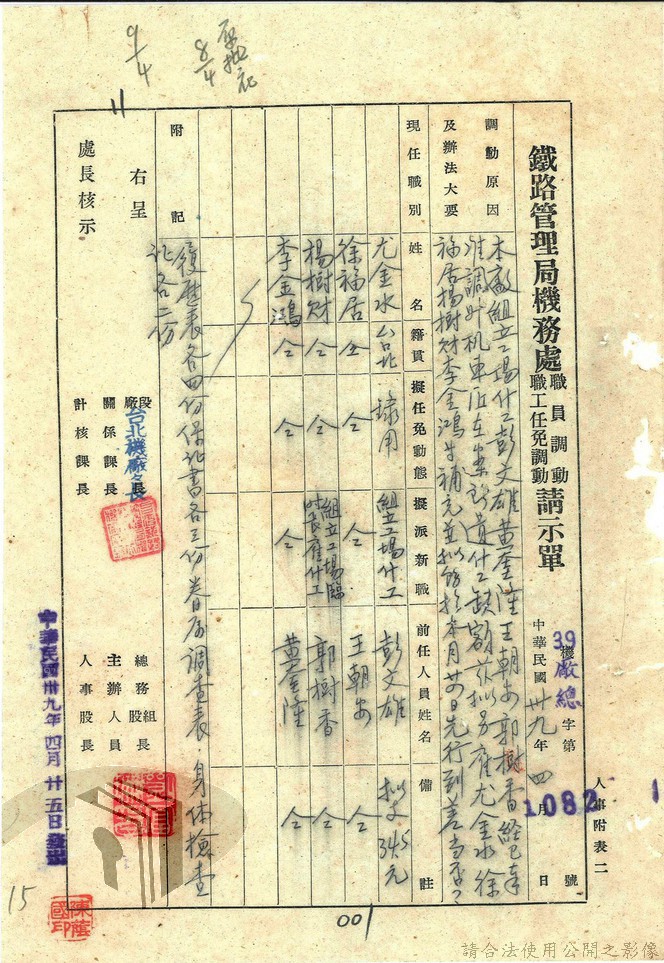 人事附表二
鐵路管理局機務處職員調動職工任免調動請示單
中華民國卅九年四月 日
39機廠總字第1082號
調動原因及辦法大要
本廠組立工場什工彭文雄黃奎陞王朝安郭樹香經已奉
准調升机車
什工缺額茲擬另雇尤金水徐
福居楊樹財李金鴻 補充並擬 於本月廿 日先行到差當否?
現任職別
姓名
籍貫
擬任免動態
擬派新職
前任人員姓名
備註
尤金水 台北 錄用 組立工場什工 彭文雄 擬支345元
徐福居 仝 仝 仝 王朝安 仝
楊樹財 仝 仝 組立工場臨時雇什工 郭樹香 仝
李金鴻 仝 仝 仝 黃奎陞 仝
附記
履歷表各四份保証書各三份眷屬調查表.身体檢查
証各二份
右呈
處長核示
段廠長
台北機廠
關係課長
計核課長
總務組股長
主辦人員
人事股長
中華民國卅九年四月廿五日發出
8/4
9/4
15
001
請合法使用公開之影像